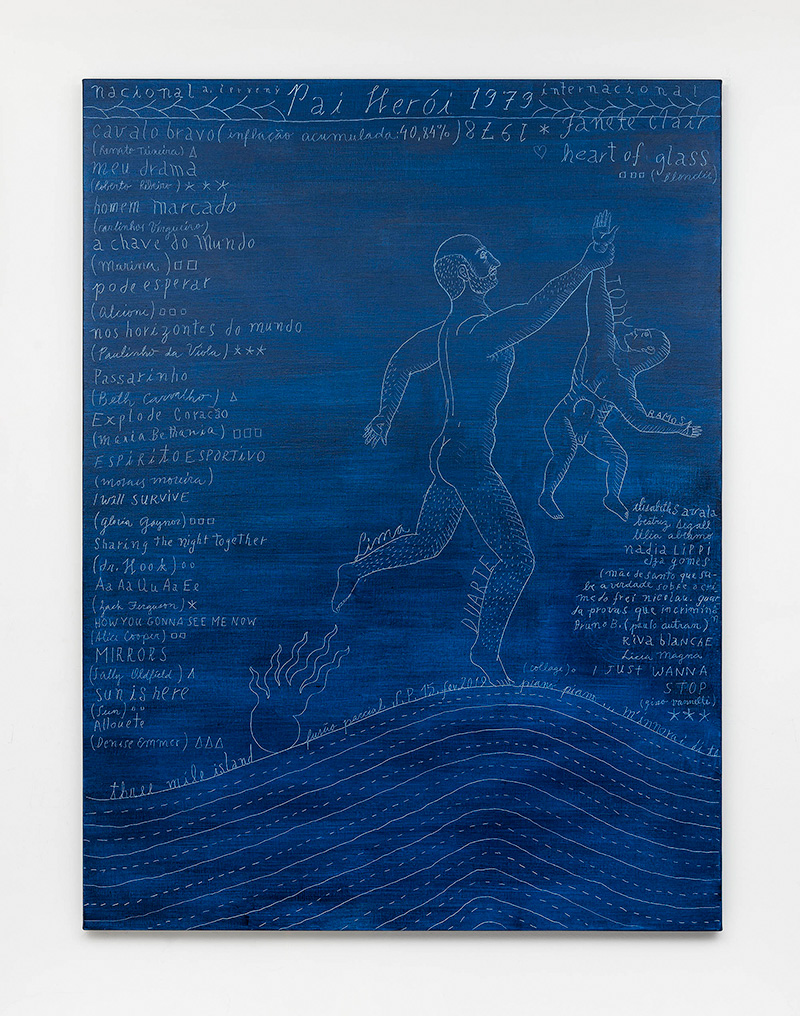 nacional a. cerveny Pai Herói 1979 internacional
cavalo bravo (inflação acumulada: 40,84%) 1978 * Janete Clair
(Renato Teixeira) △
♡ heart of glass
□□□ (Blondie)
meu drama
(Roberto Ribeiro) ***
homem marcado
(Carlinhos Vergueiro)
a chave do Mundo
(Marina) □□
pode esperar
(Alcione) □□□
nos horizontes do mundo
(Paulinho da Viola) ***
Passarinho
(Beth Carvalho) △
Explode Coração
(Maria Bethania) □□□
ESPIRITO ESPORTIVO
(moraes moreira)
I will SURVIVE
(gloria gaynor) □□□
Sharing the night together
(dr. Hook) ○○
Aa Aa Qu Aa Ee
(Jack Ferguson) *
HOW YOU GONNA SEE ME NOW
(Alice Cooper) □□
MIRRORS
(Sally Oldfield) △
sun is here
(Sun) ○○
Allouete
(Denise Emmer) △△△
RAMOS
Lima
DUARTE
elisabeth Savala
beatriz Segall
lélia abramo
nadia LIPPI
elza gomes
(mãe de santo que sa-
be a verdade sobre o cri
me do frei nicolau. guar
da provas que incriminam
Bruno B. (paulo autran)
Riva blanche
Licia Magna
(collage) ○ I JUST WANNA
STOP
(gino vannelli)
***
three mile island
fusão parcial S.P. 15. fev 2019